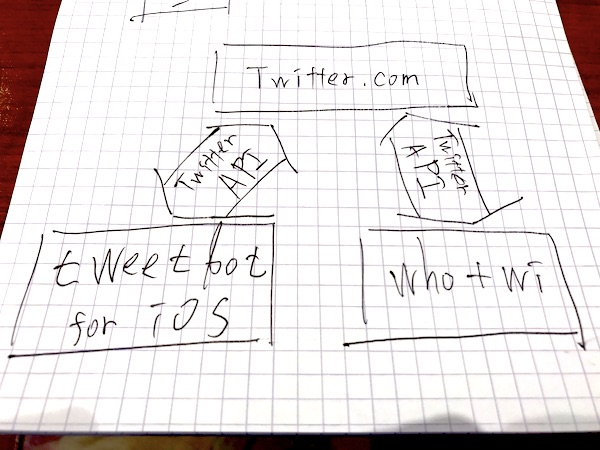 Twitter.com
Twitter
API
Twitter
API
tweetbot
for iOS
who+wi